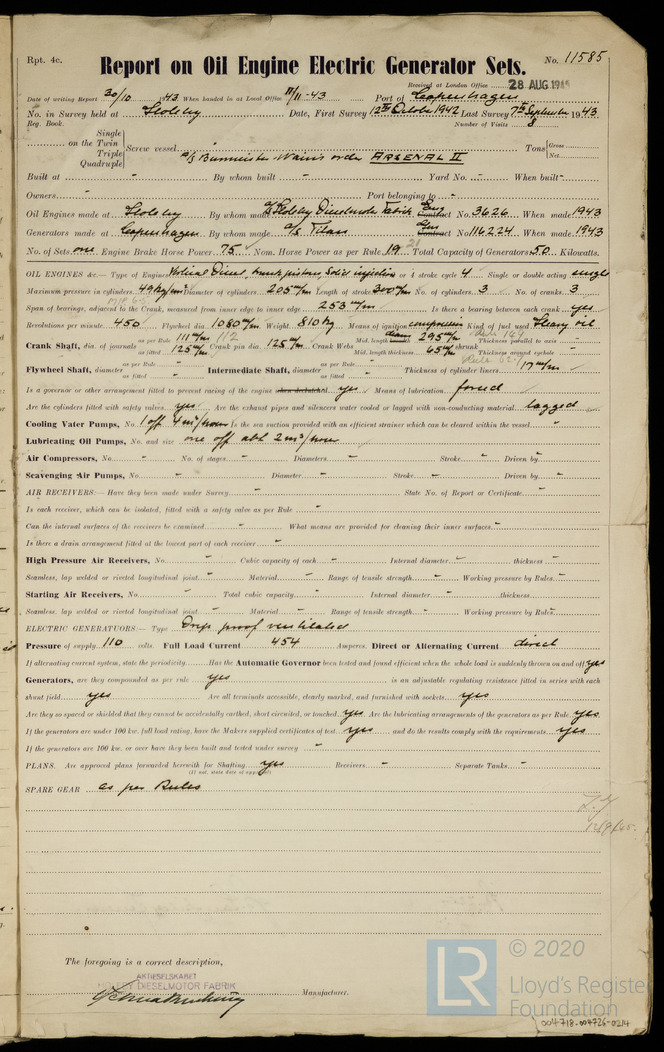 Rpt. 4c.
Report on Oil Engine Electric Generator Sets.
No. 11585
Received at London Office 28 AUG 194
Date of writing Report 30/10 1943 When handed in at Local Office 11/11-43 Port of Copenhagen
No. in Survey held at Holeby Date, First Survey 12th October 1942 Last Survey 7th September 1943
Reg. Book. Number of Visits 8
Single
on the Twin
Triple
Quadruple
Screw vessel a/s Burmeister & Wain's order ARSENAL II Tons Gross Net
Built at - By whom built - Yard No. - When built -
Owners - Port belonging to -
Oil Engines made at Holeby By whom made a/s Holeby Dieselmotor Fabrik Eng Contract No. 3626 When made 1943
Generators made at Copenhagen By whom made a/s Titan Gen Contract No. 116224 When made 1943
No. of Sets one Engine Brake Horse Power 75 Nom. Horse Power as per Rule 19 21 Total Capacity of Generators 50 Kilowatts.
OIL ENGINES &c.— Type of Engines Vertical Diesel, trunk pistons, solid injection 2 or 4 stroke cycle 4 Single or double acting single
Maximum pressure in cylinders 49 kg/cm² Diameter of cylinders 205 m/m Length of stroke 300 m/m No. of cylinders 3 No. of cranks 3
Span of bearings, adjacent to the Crank, measured from inner edge to inner edge 253 m/m Is there a bearing between each crank yes
Revolutions per minute 450 Flywheel dia. 1080 m/m Weight 810 kg Means of ignition compression Kind of fuel used Heavy oil
Crank Shaft, dia. of journals as per Rule 111 m/m 112 as fitted 125 m/m Crank pin dia. 125 m/m Crank Webs Mid. length breadth 295 m/m Mid. length thickness 65 m/m shrunk Thickness parallel to axis - Thickness around eyehole -
Flywheel Shaft, diameter as per Rule - as fitted - Intermediate Shaft, diameter as per Rule - as fitted - Thickness of cylinder liners 17 m/m
Is a governor or other arrangement fitted to prevent racing of the engine when declutched yes Means of lubrication forced
Are the cylinders fitted with safety valves yes Are the exhaust pipes and silencers water cooled or lagged with non-conducting material lagged
Cooling Water Pumps, No. 1 off 4 m³/hour Is the sea suction provided with an efficient strainer which can be cleared within the vessel -
Lubricating Oil Pumps, No. and size one off abt 2 m³/hour
Air Compressors, No. - No. of stages - Diameters - Stroke - Driven by -
Scavenging Air Pumps, No. - Diameter - Stroke - Driven by -
AIR RECEIVERS:— Have they been made under Survey - State No. of Report or Certificate -
Is each receiver, which can be isolated, fitted with a safety valve as per Rule -
Can the internal surfaces of the receivers be examined - What means are provided for cleaning their inner surfaces -
Is there a drain arrangement fitted at the lowest part of each receiver -
High Pressure Air Receivers, No. - Cubic capacity of each - Internal diameter - thickness -
Seamless, lap welded or riveted longitudinal joint - Material - Range of tensile strength - Working pressure by Rules -
Starting Air Receivers, No. - Total cubic capacity - Internal diameter - thickness
Seamless, lap welded or riveted longitudinal joint - Material - Range of tensile strength - Working pressure by Rules -
ELECTRIC GENERATORS:— Type Drip proof ventilated
Pressure of supply 110 volts. Full Load Current 454 Amperes. Direct or Alternating Current direct
If alternating current system, state the periodicity Has the Automatic Governor been tested and found efficient when the whole load is suddenly thrown on and off yes
Generators, are they compounded as per rule yes is an adjustable regulating resistance fitted in series with each
shunt field yes Are all terminals accessible, clearly marked, and furnished with sockets yes
Are they so spaced or shielded that they cannot be accidentally earthed, short circuited, or touched yes Are the lubricating arrangements of the generators as per Rule yes
If the generators are under 100 kw. full load rating, have the Makers supplied certificates of test yes and do the results comply with the requirements yes
If the generators are 100 kw. or over have they been built and tested under survey -
PLANS. Are approved plans forwarded herewith for Shafting yes Receivers - Separate Tanks -
(If not, state date of approval)
SPARE GEAR as per Rules
The foregoing is a correct description,
AKTIESELSKABET
HOLEBY DIESELMOTOR FABRIK
Manufacturer.
LR
© 2020
Lloyd's Register
Foundation
004718-004726-0214